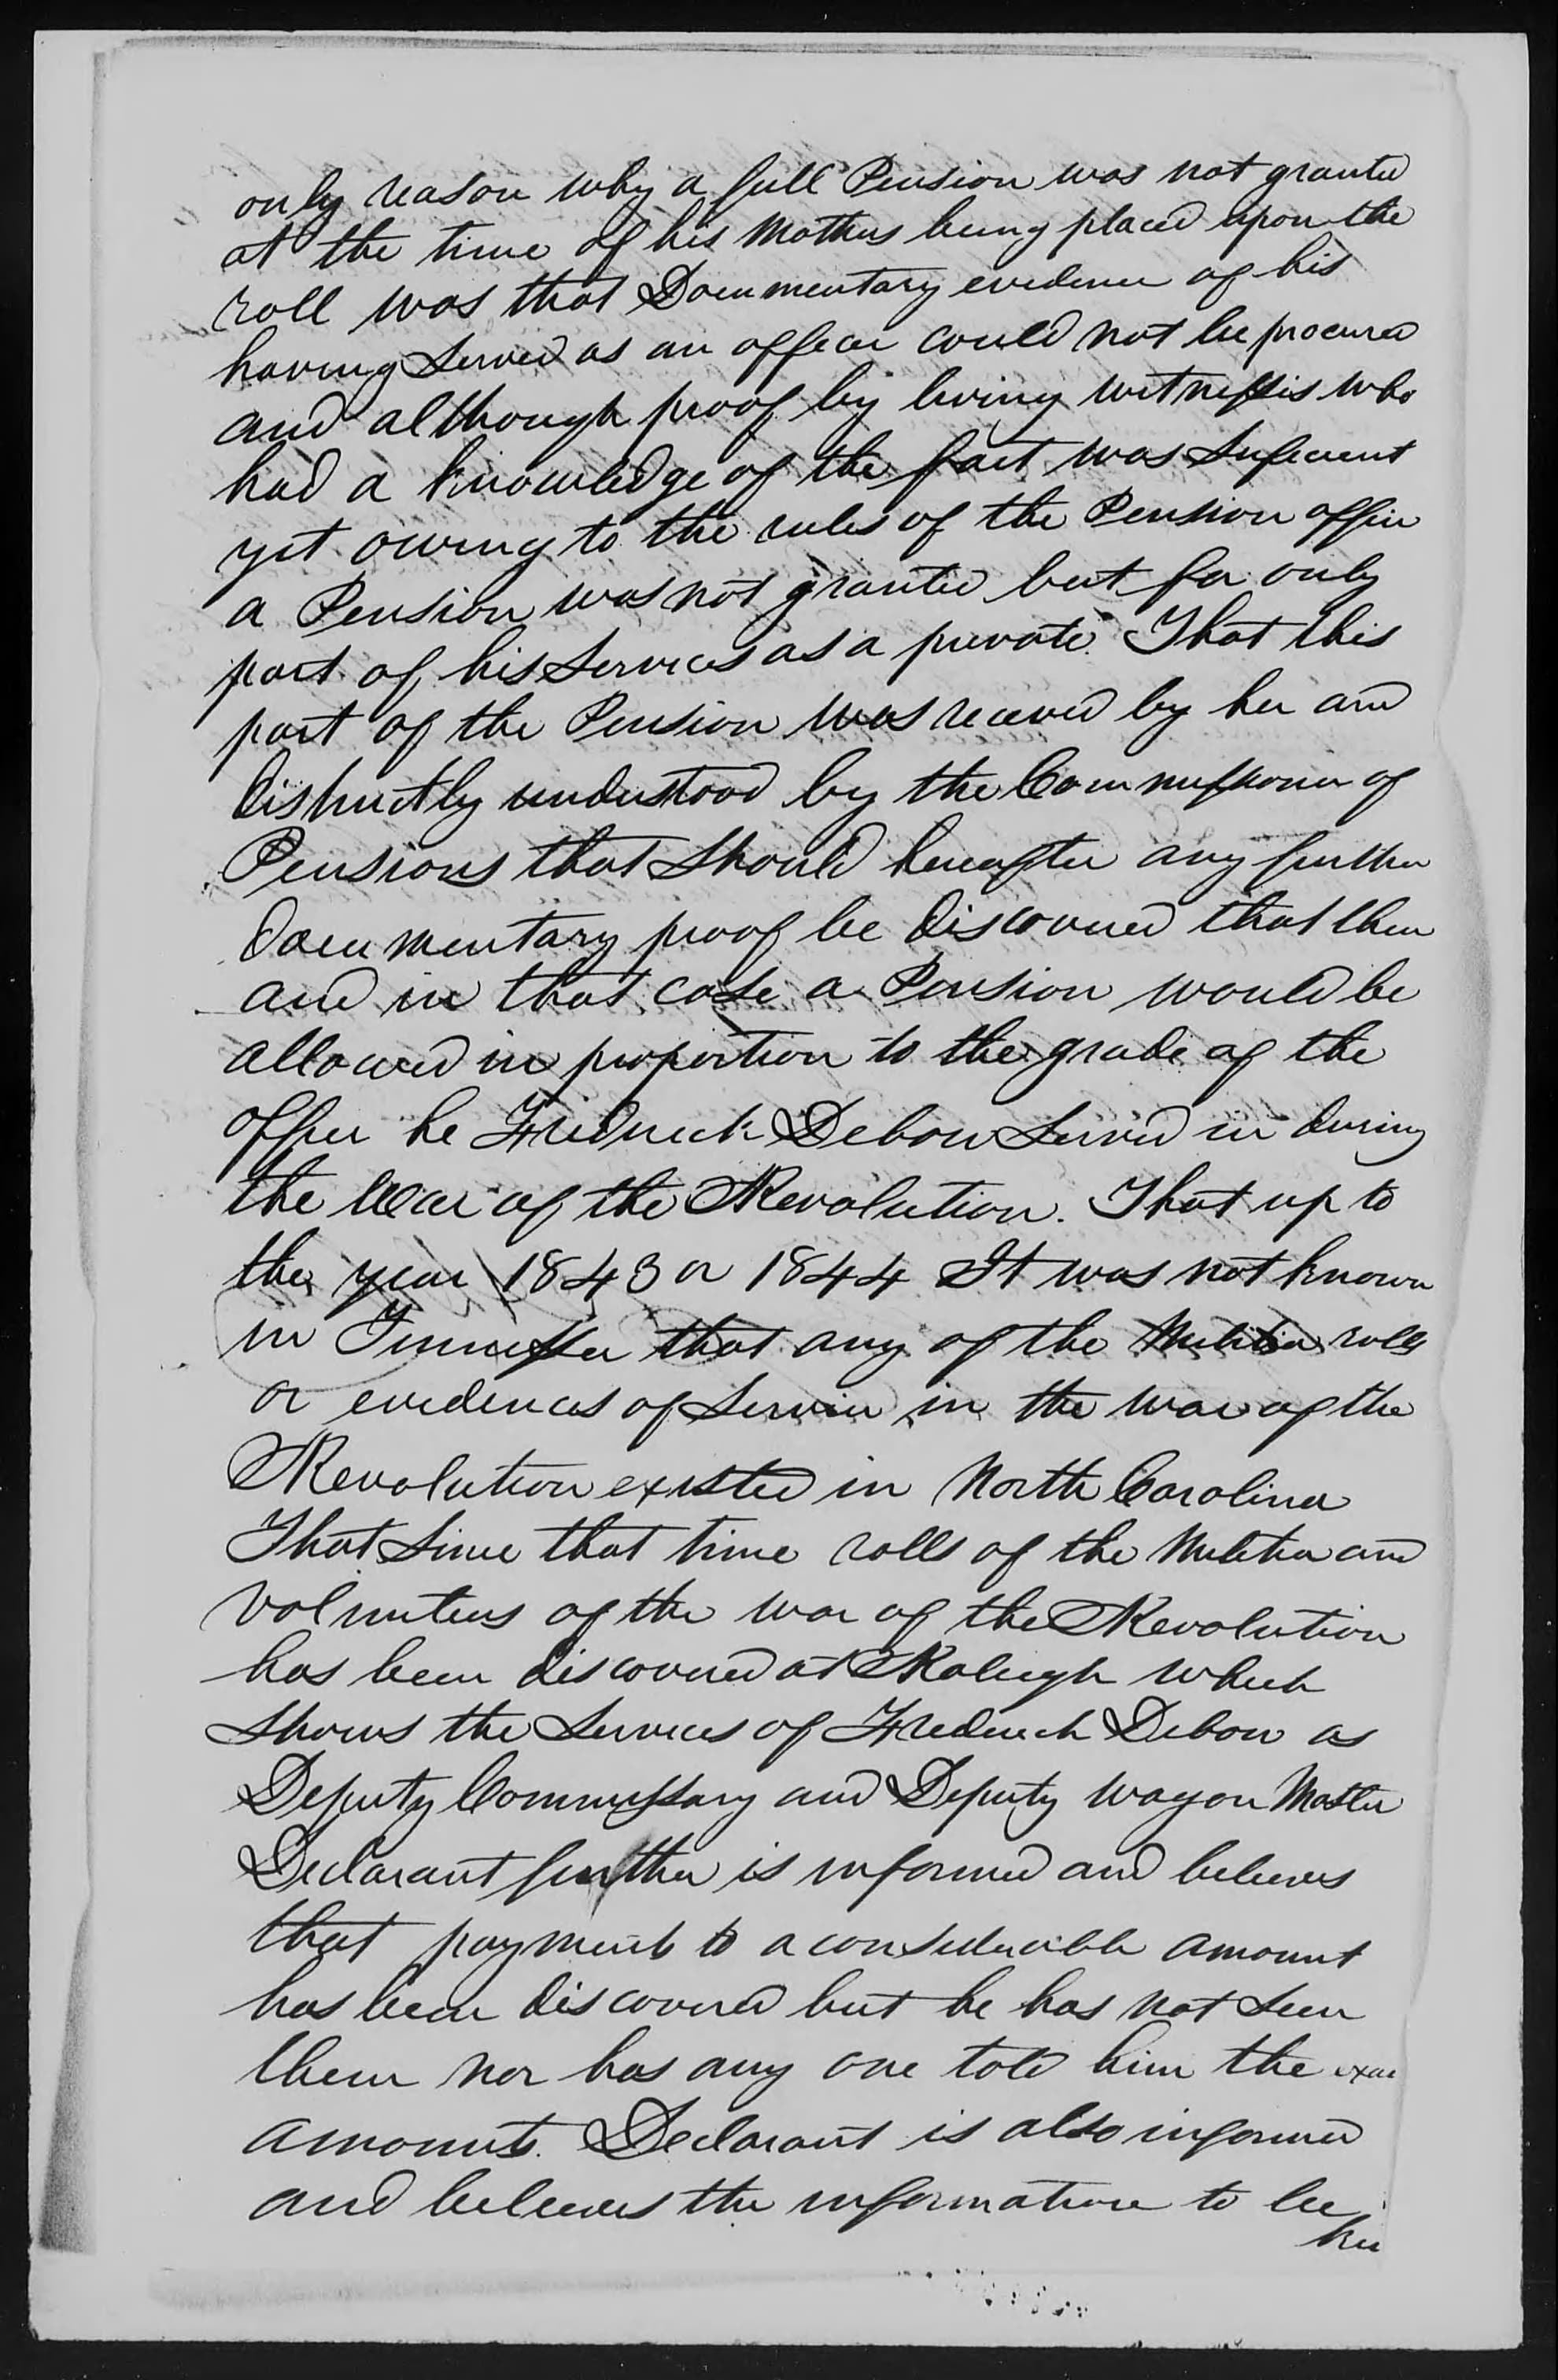 only reason why a full Pension was not granted
at the time of his Mothers being placed upon the
roll was that Documentary evidence of his
having Served as an officer could not be procured
and although proof by living witnesses who
had a knowledge of the fact was Suficient
yet owing to the rules of the Pension office
a Pension was not granted but for only
part of his Services as a private. That this
part of the Pension was received by her and
distinctly understood by the Commissioner of
Pensions that Should hereafter any further
documentary proof be discovered that then
and in that case a Pension would be
allowed in proportion to the grade of the
officer he Frederick Debow Served in during
the War of the Revolution. That up to
the year 1843 or 1844 It was not known
in Tennessee that any of the Militia rolls
or evidences of Service in the war of the
Revolution existed in North Carolina
That Since that time rolls of the Militia and
Volunteers of the war of the Revolution
has been discovered at Raleigh which
Shows the Services of Frederick Debow as
Deputy Commissary and Deputy Wagon Master
Declarant further is informed and believes
that payments to a considerable amount
has been discovered but he has not Seen
them nor has any one told him the exac
amounts. Declarant is also informed
and believes the information to be